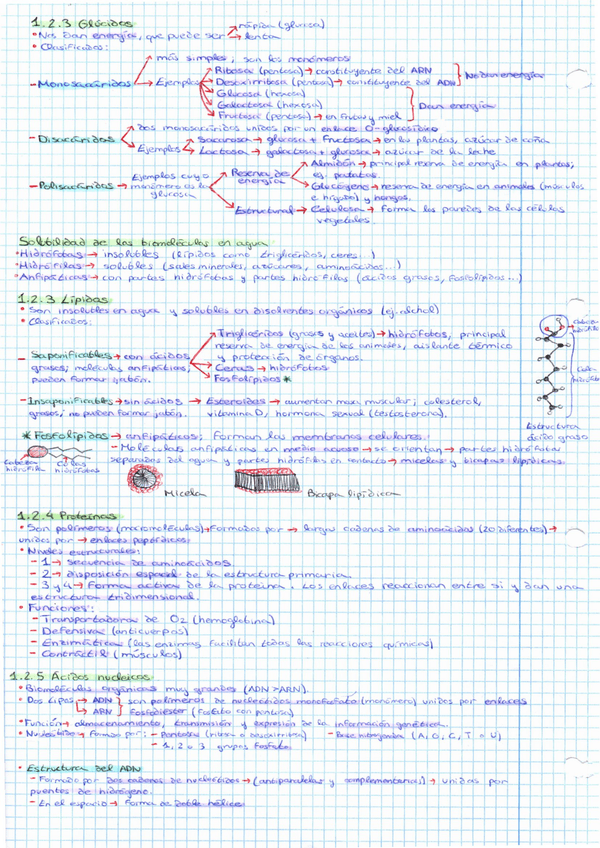 1.2.3 Glúcidos
• Nos dan energía, que puede ser → rápida (glucosa)
→ lenta
• Clasificados:
- Monosacáridos → más simples, son los monómeros
→ Ejemplos → Ribosa (pentosa) → constituyente del ARN
→ Desoxirribosa (pentosa) → constituyente del ADN } No dan energía
→ Glucosa (hexosa)
→ Galactosa (hexosa) } Dan energía
→ Fructosa (pentosa) → en frutas y miel
- Disacáridos → dos monosacáridos unidos por un enlace O-glucosídico
→ Ejemplos → Sacarosa → glucosa + fructosa → en las plantas, azúcar de caña
→ Lactosa → galactosa + glucosa → azúcar de la leche
- Polisacáridos → Ejemplos cuyo monómero es la glucosa → Reserva de energía → Almidón → principal reserva de energía en plantas,
ej. patatas.
→ Glucógeno → reserva de energía en animales (músculos
e hígado) y hongos.
→ Estructural → Celulosa → forma las paredes de las células
vegetales.
Solubilidad de las biomoléculas en agua
• Hidrófobas → insolubles (lípidos como triglicéridos, ceras...)
• Hidrófilas → solubles (sales minerales, azúcares, aminoácidos...)
• Anfipáticas → con partes hidrófobas y partes hidrófilas (ácidos grasos, fosfolípidos...)
1.2.3 Lípidos
• Son insolubles en agua y solubles en disolventes orgánicos (ej. alcohol)
• Clasificados:
- Saponificables → con ácidos
grasos; moléculas anfipáticas;
pueden formar jabón.
→ Triglicéridos (grasas y aceites) → hidrófobos, principal
reserva de energía de los animales, aislante térmico
y protección de órganos.
→ Ceras → hidrófobas
→ Fosfolípidos *
- Insaponificables → sin ácidos → Esteroides → aumentan masa muscular; colesterol,
grasos; no pueden formar jabón. vitamina D, hormona sexual (testosterona).
Estructura
ácido graso
* Fosfolípidos → anfipáticos; forman las membranas celulares.
- Moléculas anfipáticas en medio acuoso → se orientan → partes hidrófobas
separadas del agua y partes hidrófilas en contacto → micelas y bicapas lipídicas.
Cabeza
hidrófila
Colas
hidrófobas
Micela
Bicapa lipídica
1.2.4 Proteínas
• Son polímeros (macromoléculas) → formados por → largas cadenas de aminoácidos (20 diferentes) →
unidos por → enlaces peptídicos.
• Niveles estructurales:
- 1 → secuencia de aminoácidos.
- 2 → disposición espacial de la estructura primaria.
- 3 y 4 → Forma activa de la proteína. Los enlaces reaccionan entre sí y dan una
estructura tridimensional.
• Funciones:
- Transportadora de O2 (hemoglobina)
- Defensiva (anticuerpos)
- Enzimática (las enzimas facilitan todas las reacciones químicas)
- Contráctil (músculos)
1.2.5 Ácidos nucleicos
• Biomoléculas orgánicas muy grandes (ADN > ARN).
• Dos tipos → ADN } son polímeros de nucleótidos monofosfato (monómero) unidos por enlaces
→ ARN } fosfodiéster (fosfato con pentosa)
• Función → almacenamiento, transmisión y expresión de la información genética.
• Nucleótido → formado por: - Pentosa (ribosa o desoxirribosa) - Base nitrogenada (A, G, C, T o U)
- 1, 2 o 3 grupos fosfato
• Estructura del ADN
- Formado por dos cadenas de nucleótidos → (antiparalelas y complementarias) → unidas por
puentes de hidrógeno.
- En el espacio → forma de doble hélice